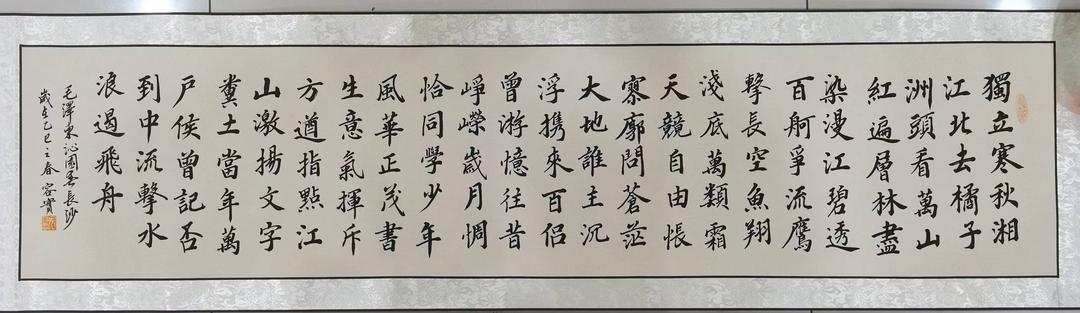 獨立寒秋湘
江北去橘子
洲頭看萬山
紅遍層林盡
染漫江碧透
百舸爭流鷹
擊長空魚翔
淺底萬類霜
天競自由悵
寥廓問蒼茫
大地誰主沉
浮携來百侣
曾游憶往昔
崢嶸歲月惆
恰同學少年
風華正茂書
生意氣揮斥
方遒指點江
山激揚文字
糞土當年萬
戶侯曾記否
到中流擊水
浪遏飛舟
毛澤東沁園春長沙
歲在乙巳之春容實